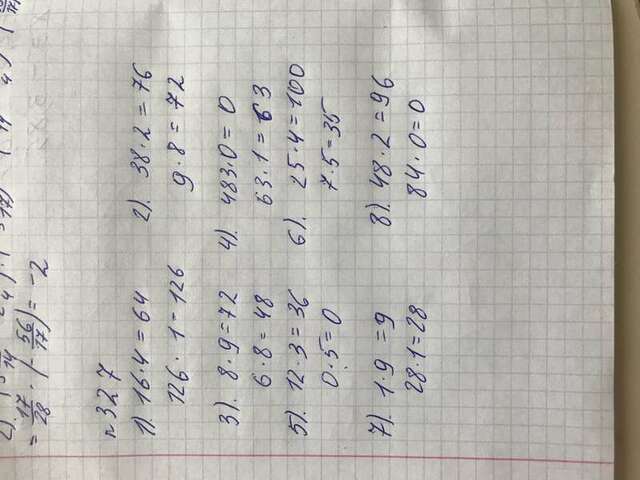 = 17/28 · (- 56/17) = -2
№327
1). 16·4=64
126·1=126
2). 38·2=76
9·8=72
3). 8·9=72
6·8=48
4). 483·0=0
63·1=63
5). 12·3=36
0·5=0
6). 25·4=100
7·5=35
7). 1·9=9
28·1=28
8). 48·2=96
84·0=0